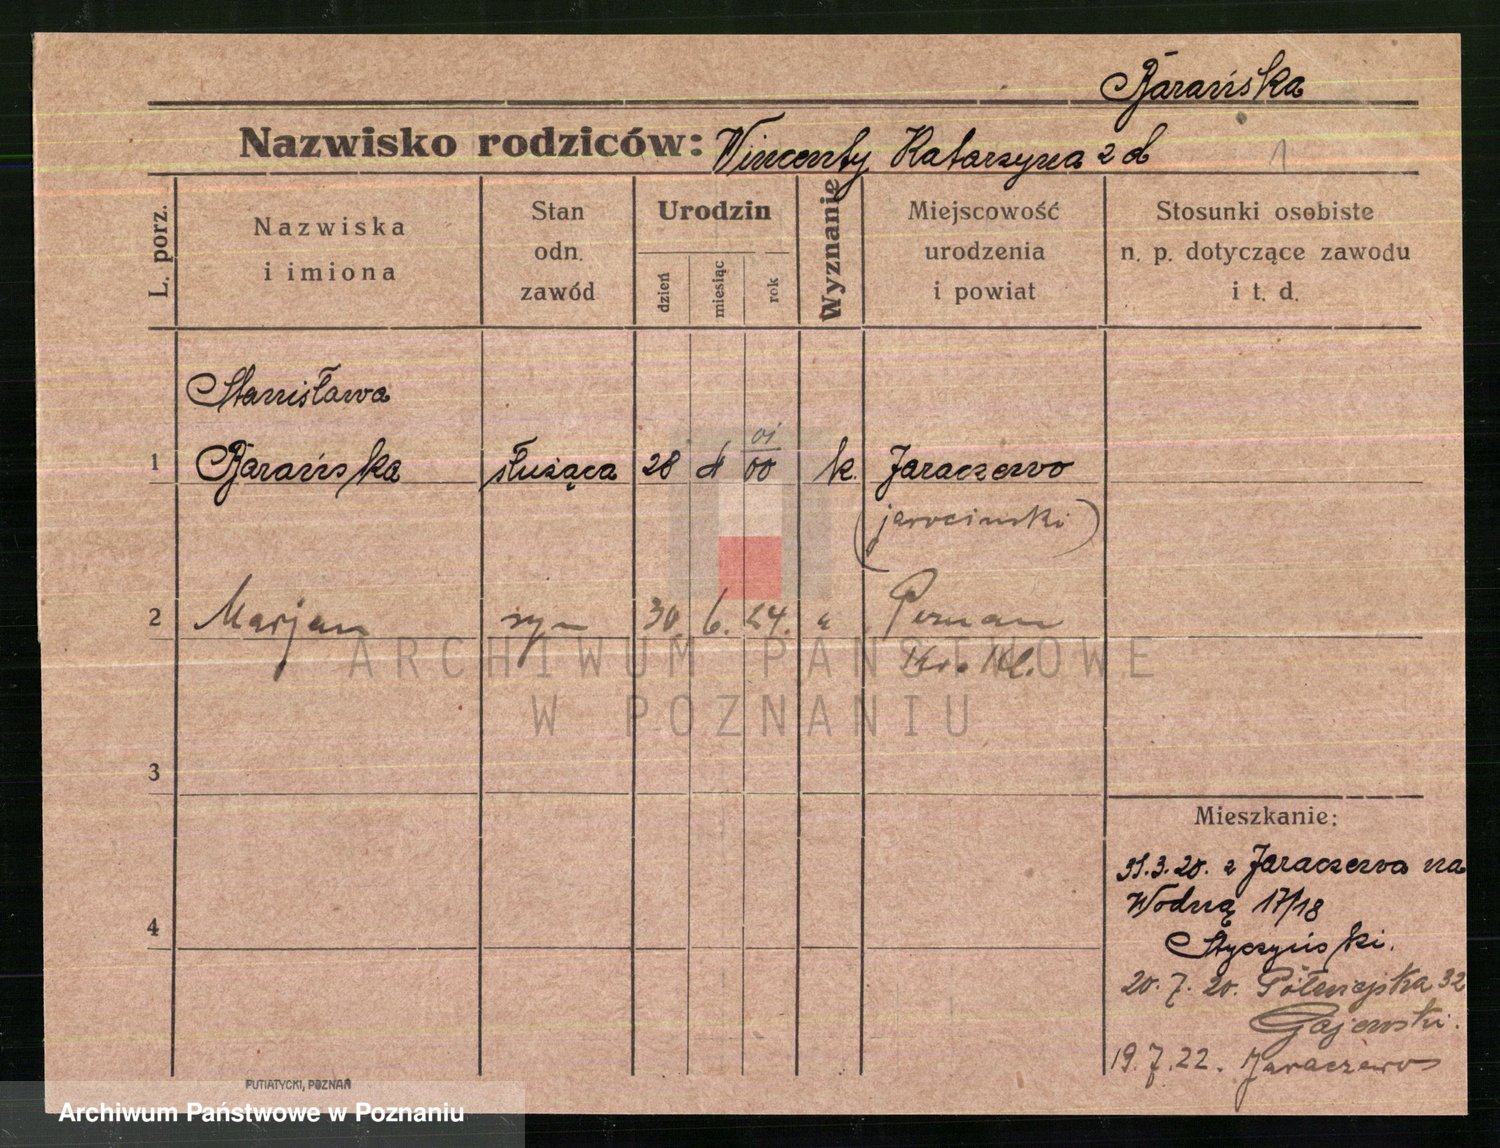 Barańska
Nazwisko rodziców: Wincenty Katarzyna z d
1
L. porz.
Nazwiska
i imiona
Stan
odn.
zawód
Urodzin
dzień
miesiąc
rok
Wyznanie
Miejscowość
urodzenia
i powiat
Stosunki osobiste
n. p. dotyczące zawodu
i t. d.
Stanisława
01
1 Barańska służąca 28 4 00 k. Jaraczewo
(jarocinski)
2 Marjan syn 30. 6. 24. " Poznan
ARCHIWUM PAŃSTWOWE
W POZNANIU
3
Mieszkanie:
31.3.20. z Jaraczewa na
Wodną 17/18
4
Styczyński.
20.7.20. Półwiejska 32
Gajewski.
19.7.22. Jaraczewo
PUTIATYCKI, POZNAŃ
Archiwum Państwowe w Poznaniu